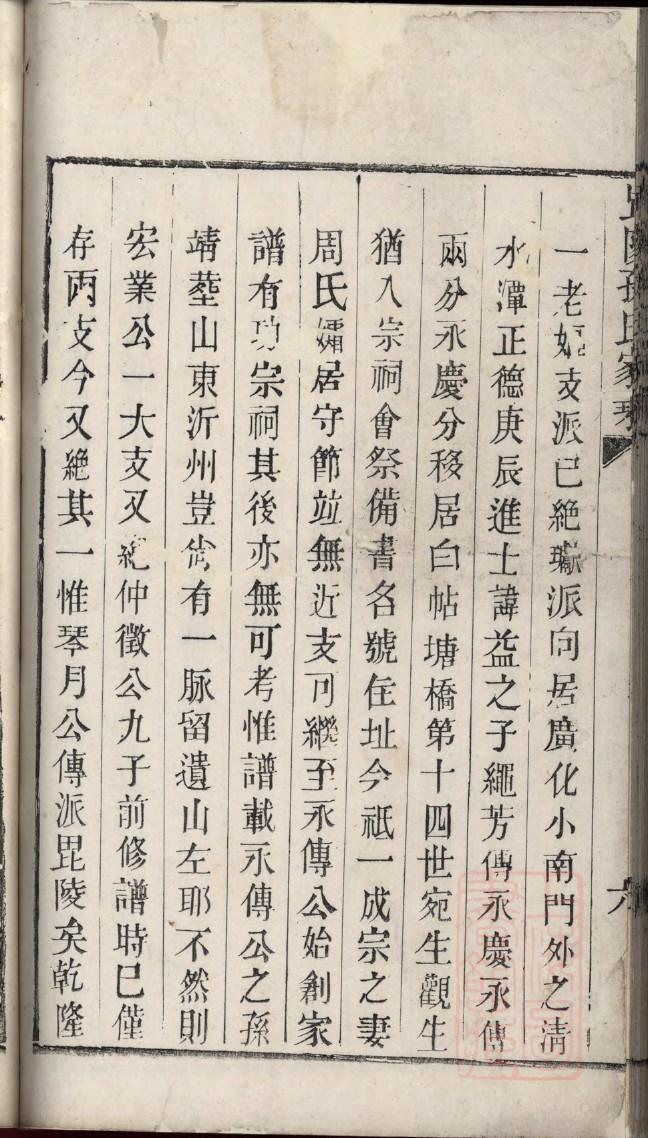 毘陵孫氏家乘
六
一老嫗支派已絶瓛派向居廣化小南門外之清
水潭正德庚辰進士諱益之子繩芳傳永慶永傳
兩分永慶分移居白帖塘橋第十四世宛生觀生
猶入宗祠會祭備書名號住址今祇一成宗之妻
周氏孀居守節並無近支可繼至永傳公始創家
譜有功宗祠其後亦無可考惟譜載永傳公之孫
靖塟山東沂州豈尙有一脉留遺山左耶不然則
宏業公一大支又絶仲徵公九子前修譜時已僅
存丙支今又絶其一惟琴月公傳派毘陵矣乾隆